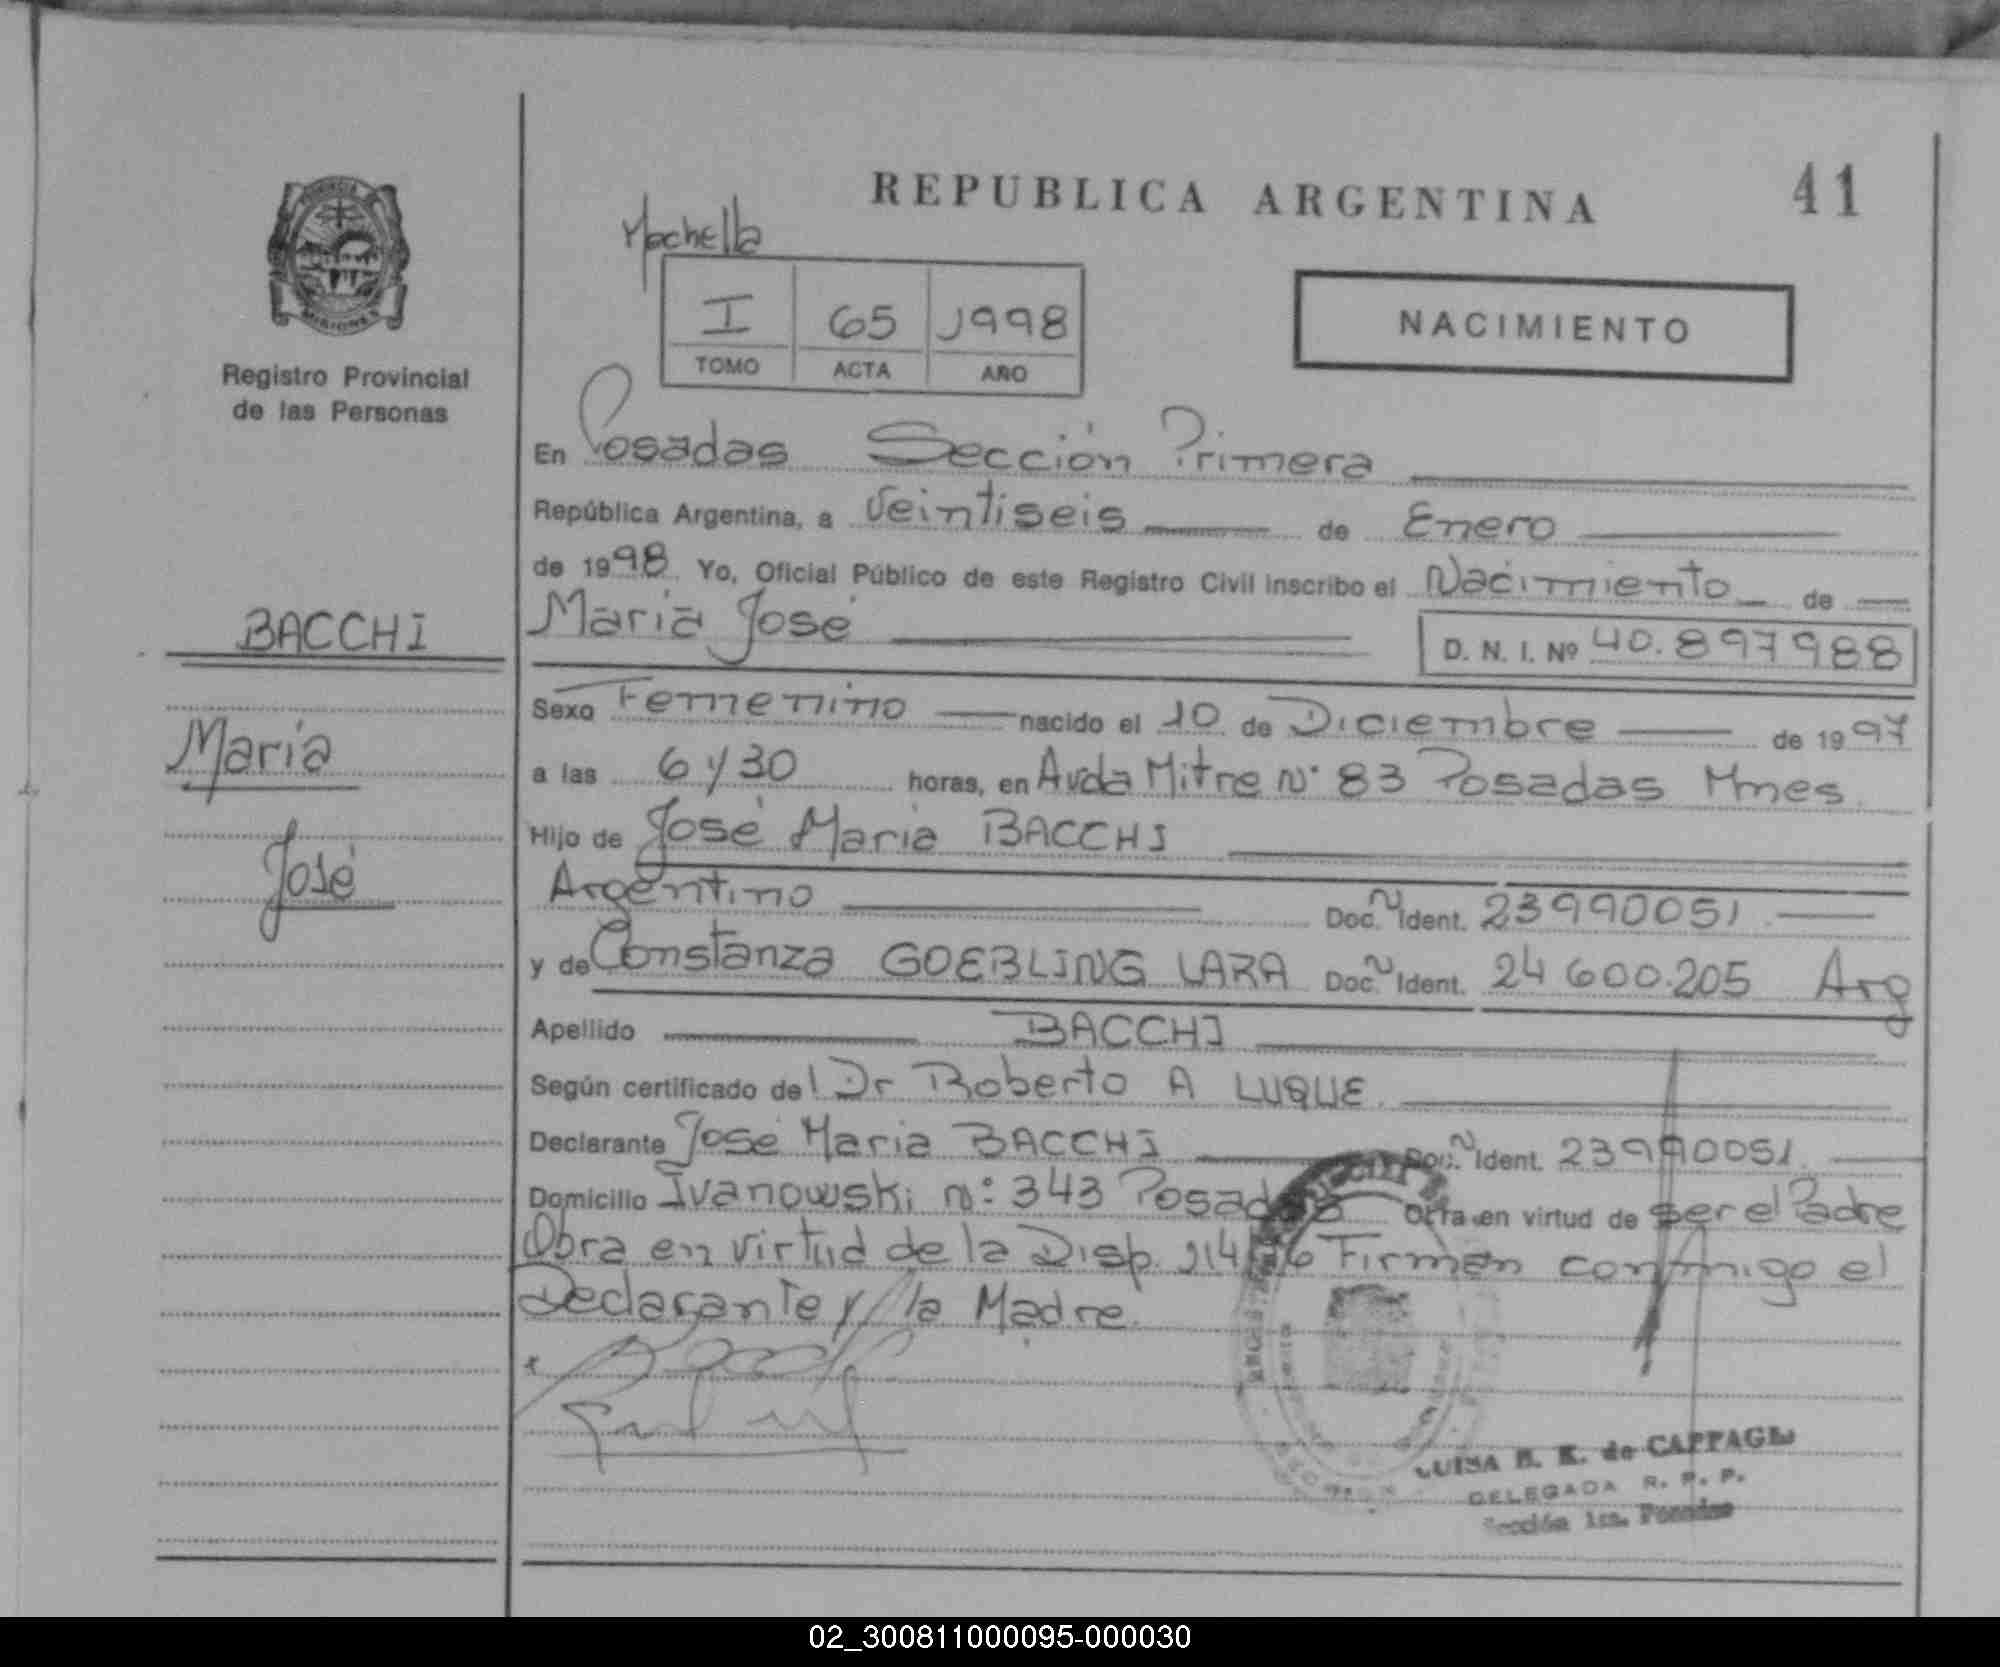 REPUBLICA ARGENTINA 41
Mochella
I 65 1998
TOMO ACTA AÑO
NACIMIENTO
PROVINCIA
MISIONES
Registro Provincial
de las Personas
BACCHI
Maria
José
En Posadas Sección Primera
República Argentina, a Veintiseis de Enero
de 1998 Yo, Oficial Público de este Registro Civil inscribo el Nacimiento de
Maria José D. N. I. Nº 40.897988
Sexo Femenino nacido el 10 de Diciembre de 1997
a las 6 y 30 horas, en Avda Mitre Nº 83 Posadas Mnes
Hijo de José Maria BACCHI
Argentino Doc. Ident. 23990051
y de Constanza GOEBLING LARA Doc. Ident. 24600.205 Arg
Apellido BACCHI
Según certificado del Dr Roberto A LUQUE
Declarante José Maria BACCHI Doc. Ident. 23990051
Domicilio Ivanowski nº: 343 Posadas Obra en virtud de ser el Padre
Obra en virtud de la Disp. Firman conmigo el
Declarante y la Madre.
LUISA B. K. de CAPPAGLI
DELEGADA R. P. P.
Sección 1ra. Posadas
02_300811000095-000030